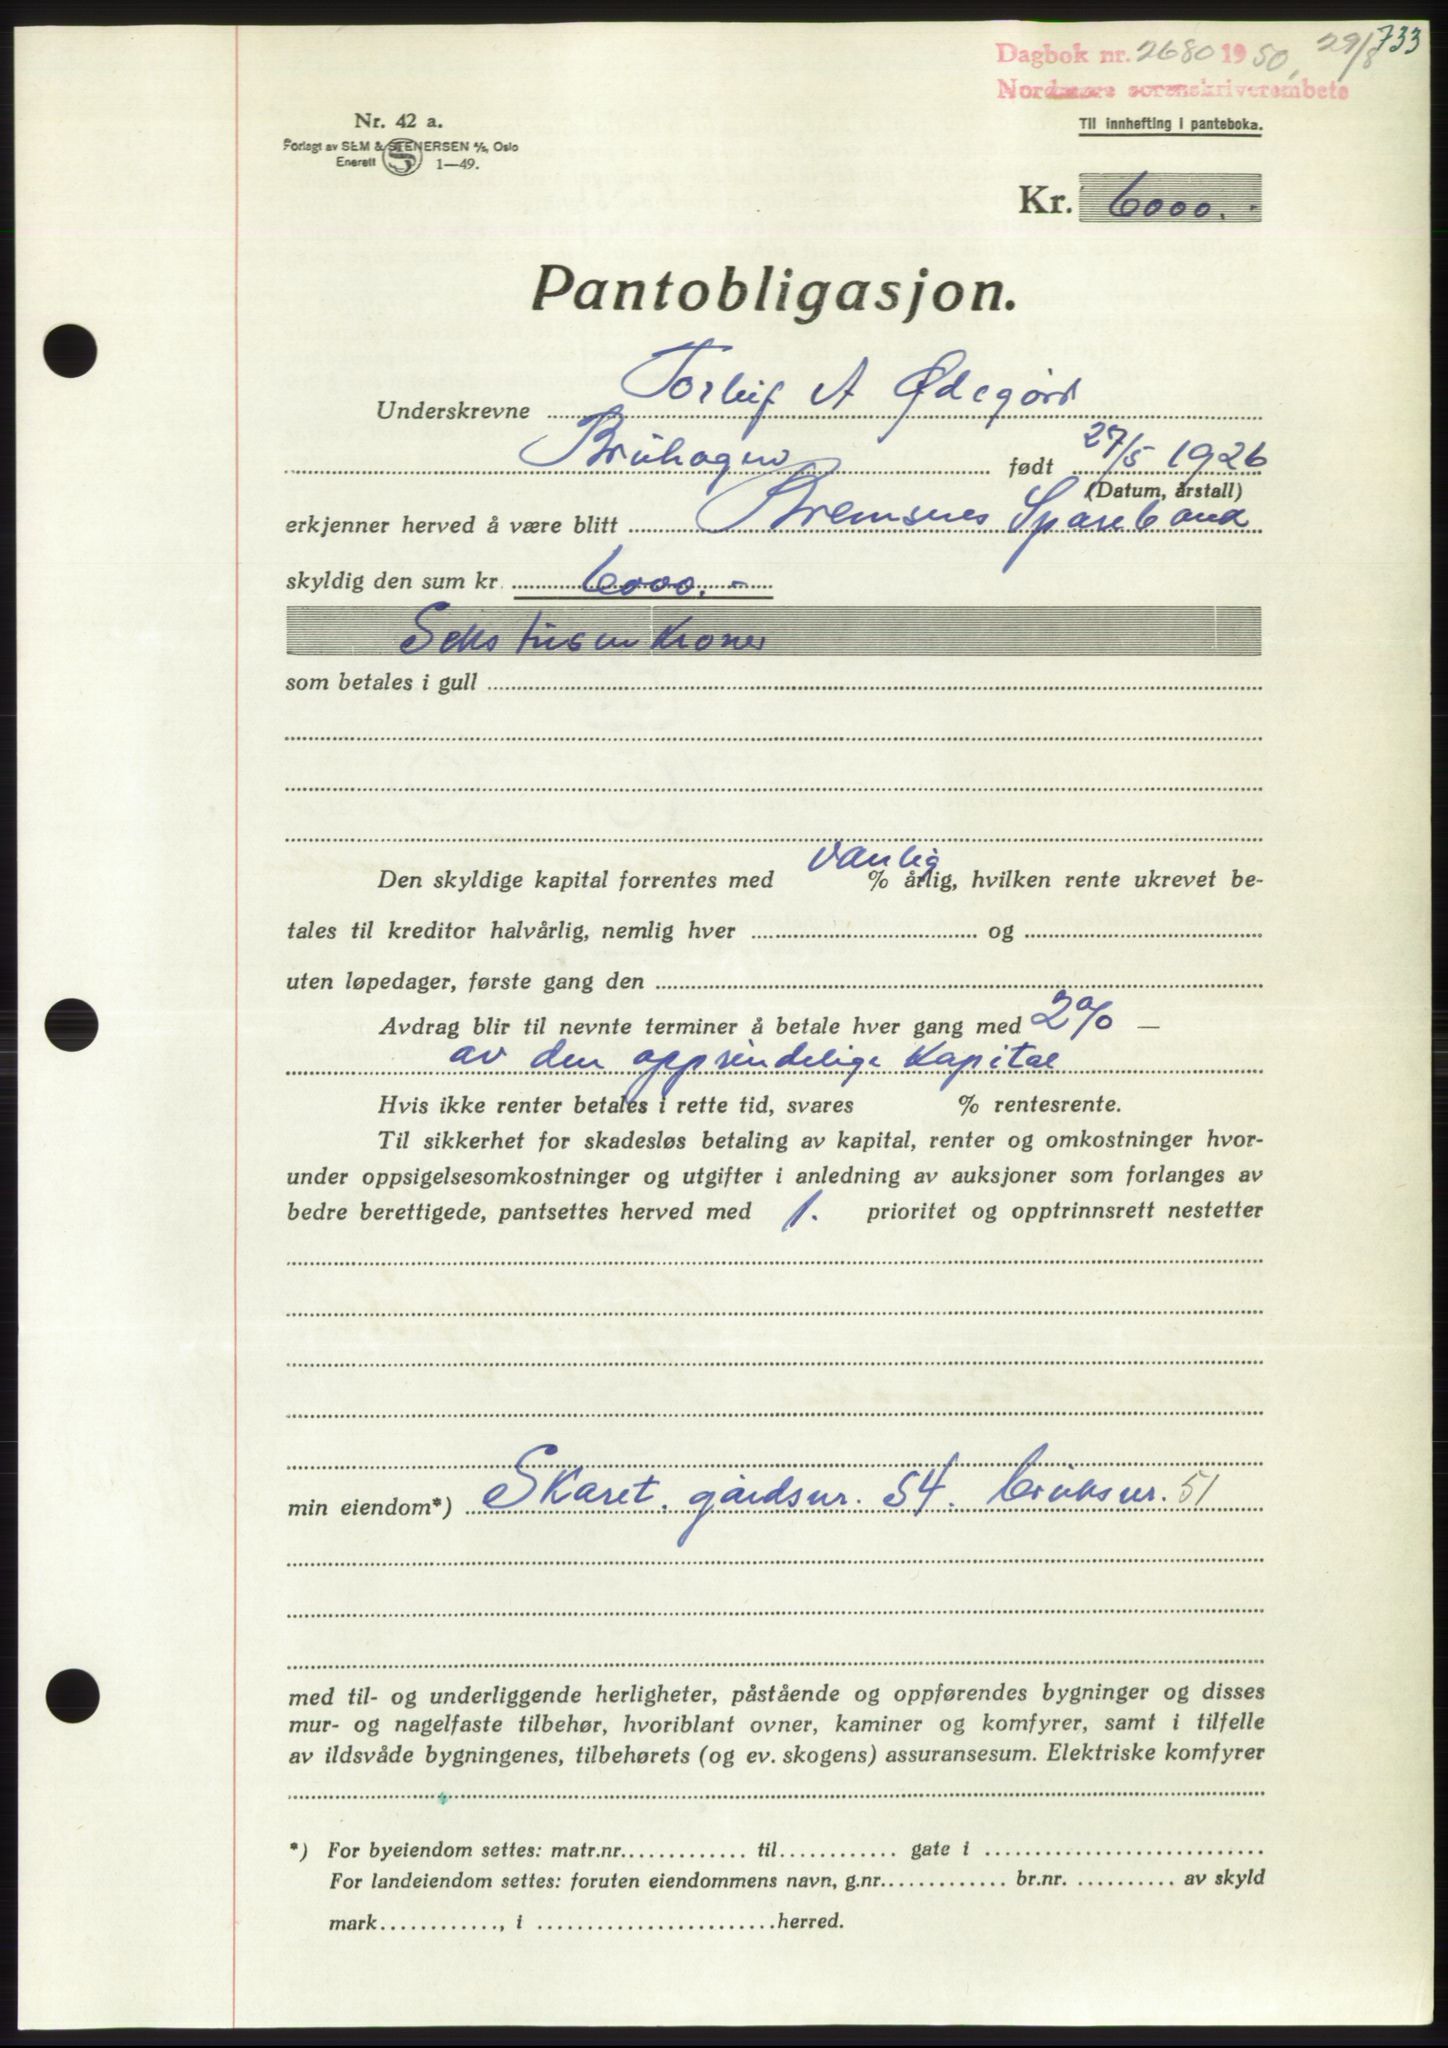 733
Dagbok nr. 2680 1950, 29/8
Nordmøre sorenskriverembete
Nr. 42 a.
Forlagt av SEM & STENERSEN A/S, Oslo
Enerett S 1—49.
Til innhefting i panteboka.
Kr. 6000.-
Pantobligasjon.
Underskrevne Torleif A Ødegård
Bruhagen født 27/5 1926
(Datum, årstall)
erkjenner herved å være blitt Bremsnes Sparebank
skyldig den sum kr. 6000.-
Seks tusen Kroner
som betales i gull
Den skyldige kapital forrentes med vanlig % årlig, hvilken rente ukrevet be-
tales til kreditor halvårlig, nemlig hver og
uten løpedager, første gang den
Avdrag blir til nevnte terminer å betale hver gang med 2% —
av den opprindelige Kapital
Hvis ikke renter betales i rette tid, svares % rentesrente.
Til sikkerhet for skadesløs betaling av kapital, renter og omkostninger hvor-
under oppsigelsesomkostninger og utgifter i anledning av auksjoner som forlanges av
bedre berettigede, pantsettes herved med 1. prioritet og opptrinnsrett nestetter
min eiendom*) Skaret. gårdsnr. 54. bruksnr. 51
med til- og underliggende herligheter, påstående og oppførendes bygninger og disses
mur- og nagelfaste tilbehør, hvoriblant ovner, kaminer og komfyrer, samt i tilfelle
av ildsvåde bygningenes, tilbehørets (og ev. skogens) assuransesum. Elektriske komfyrer
*) For byeiendom settes: matr.nr. til gate i
For landeiendom settes: foruten eiendommens navn, g.nr. br.nr. av skyld
mark , i herred.